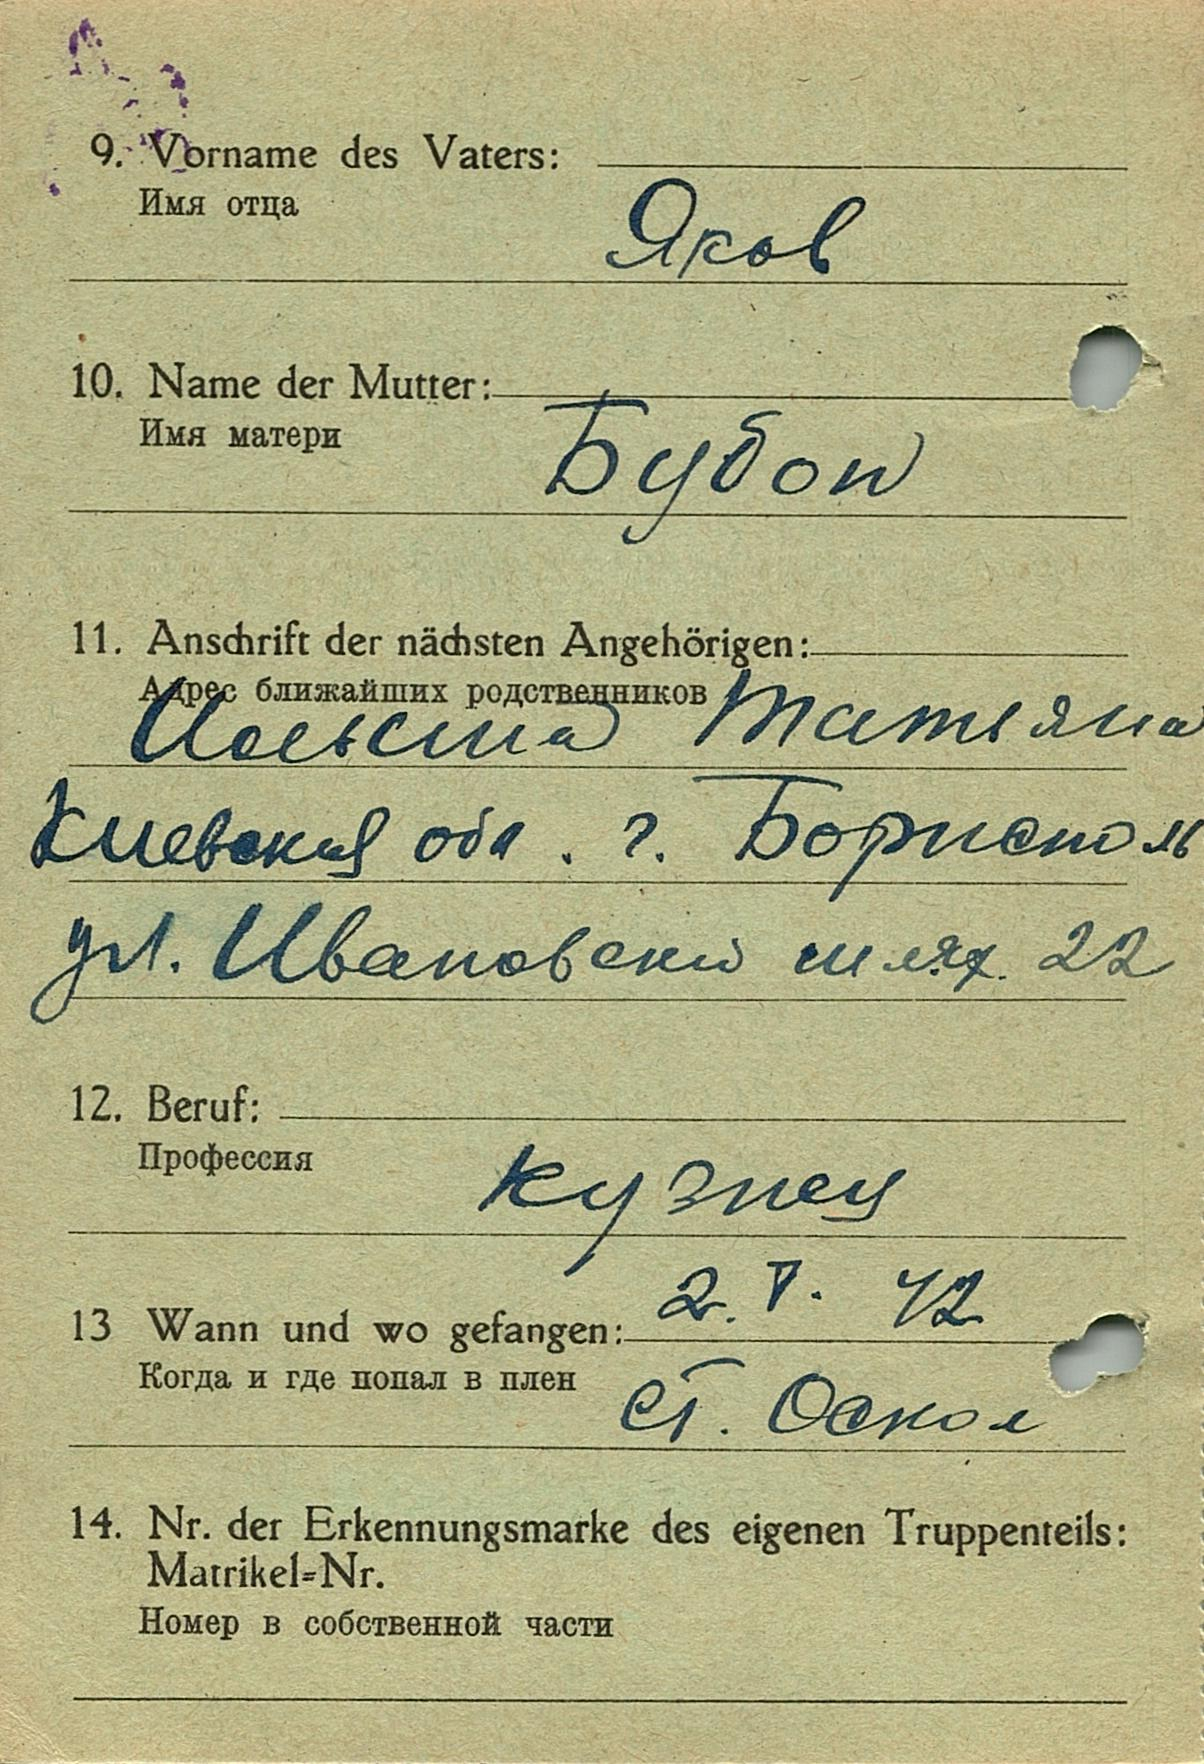 9. Vorname des Vaters:
Имя отца
Яков
10. Name der Mutter:
Имя матери
Бубон
11. Anschrift der nächsten Angehörigen:
Адрес ближайших родственников
Татьяна
Киевская обл. г. Борисполь
ул. Ивановски шлях. 22
12. Beruf:
Профессия
Кузнец
2. V. 42
13 Wann und wo gefangen:
Когда и где попал в плен
Ст. Оскол
14. Nr. der Erkennungsmarke des eigenen Truppenteils:
Matrikel=Nr.
Номер в собственной части